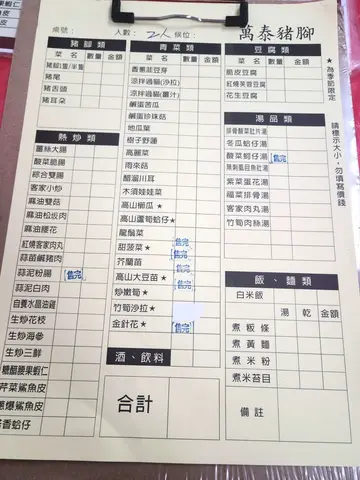 桌號：
人數：2人 候位：
萬泰豬腳
豬腳類
菜名 數量 金額
豬腳1隻/半隻
豬尾
豬舌頭
豬耳朵
熱炒類
菜名 數量 金額
薑絲大腸
酸菜脆腸
綜合雙腸
客家小炒
麻油雙菇
麻油松坂肉
麻油腰花
紅燒客家肉丸
蒜苗鹹豬肉
蒜泥粉腸 售完
蒜泥白肉
自養水晶油雞
生炒花枝
生炒海參
生炒三鮮
糖醋腰果蝦仁
芹菜鯊魚皮
爆鯊魚皮
香蛤仔
青菜類
菜名 數量 金額
香蔥涼豆身
涼拌過貓(沙拉)
涼拌過貓(薑汁)
鹹蛋苦瓜
鹹蛋炒珠菇
地瓜葉
樹子野蓮
高麗菜
雨來菇
醋溜川耳
木須娃娃菜
高山櫛瓜★
高山蘆筍蛤仔★
龍鬚菜
甜菠菜★ 售完
芥蘭苗 售完
高山大豆苗★ 售完
炒嫩筍★ 售完
竹筍沙拉★
金針花★ 售完
酒、飲料
合計
豆腐類
菜名 數量 金額
脆皮豆腐
紅燒芙蓉豆腐
花生豆腐
湯品類
排骨酸菜肚片湯
冬瓜蛤仔湯
酸菜蚵仔湯 售完
無刺虱目魚肚湯
紫菜蛋花湯
福菜排骨湯
客家肉丸湯
竹筍肉絲湯
飯、麵類
白米飯
湯 乾 金額
煮粄條
煮黃麵
煮米粉
煮米苔目
備註
★為季節限定
請標示大小，勿填寫價錢